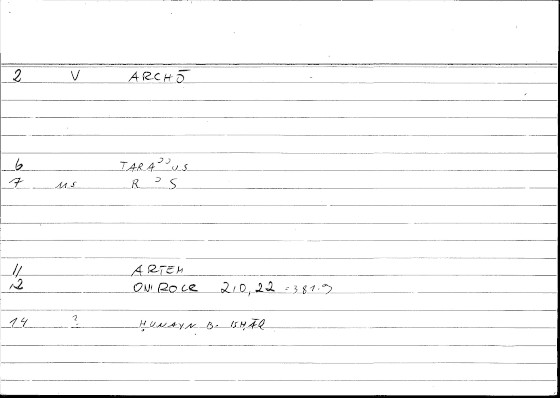 2 V ARCHŌ
6 TARAɔɔUS
7 MS R ɔ S
11 ARTEM
12 ONIROCR 210,22 = 381.9
14 ? ḤUNAYN B. ISḤĀQ